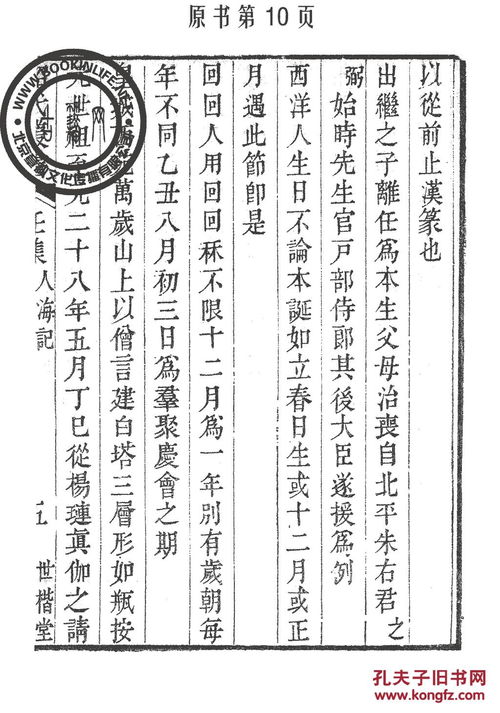 原书第10页
以從前止漢篆也
出繼之子離任爲本生父母治喪自北平朱右君之
弼始時先生官戸部侍郎其後大臣遂援爲例
西洋人生日不論本誕如立春日生或十二月或正
月遇此節卽是
回回人用回回秝不限十二月爲一年別有歲朝每
年不同乙丑八月初三日爲羣聚慶會之期
萬歲山上以僧言建白塔三層形如瓶按
元世祖至元二十八年五月丁巳從楊璉眞伽之請
壬集人海記 五 世楷堂
WWW.BOOKINLIFE
孔夫子旧书网
www.kongfz.com